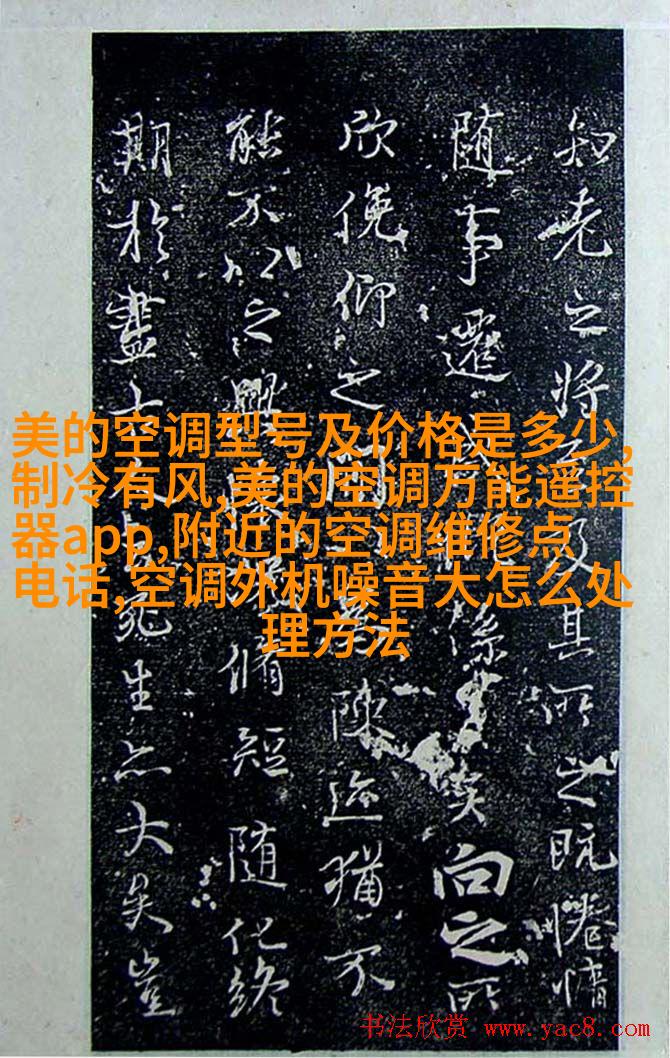 知老之将至及其所之既惓情
随事遷感係之矣向之所
欣俛仰之間為陳迹猶不
能不以之興懷脩短随化終
期於盡古人云死生亦大矣豈
美的空调型号及价格是多少,
制冷有风,美的空调万能遥控
器app,附近的空调维修点
电话,空调外机噪音大怎么处
理方法
书法欣赏 www.yac8.com